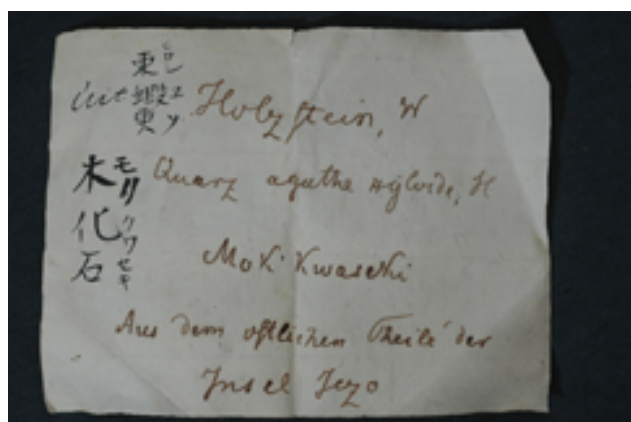 東蝦
Holzstein, W
木化石
クワセキ
Quarz agathe xyloide, H
Moki Kwaseki
Aus dem östlichen Theile der
Insel Jezo